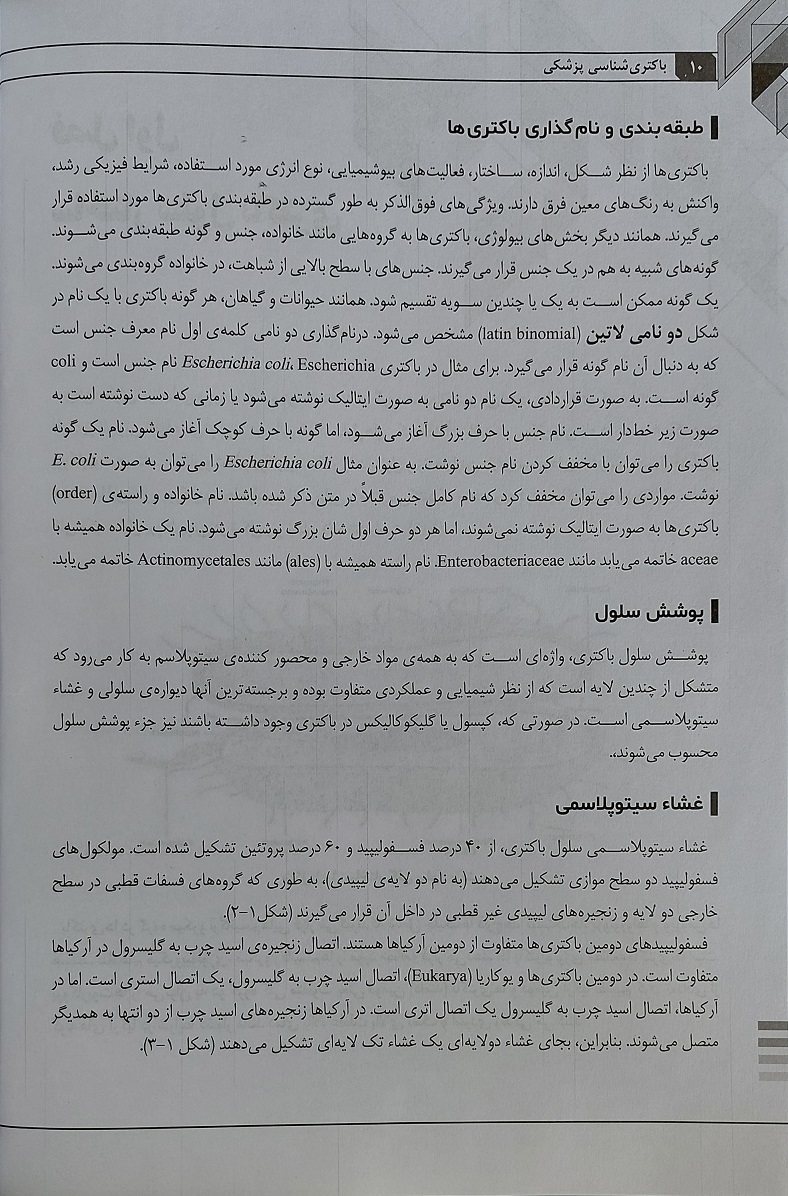 ۱۰ باکتری‌شناسی پزشکی
طبقه‌بندی و نام‌گذاری باکتری‌ها
باکتری‌ها از نظر شکل، اندازه، ساختار، فعالیت‌های بیوشیمیایی، نوع انرژی مورد استفاده، شرایط فیزیکی رشد،
واکنش به رنگ‌های معین فرق دارند. ویژگی‌های فوق‌الذکر به طور گسترده در طبقه‌بندی باکتری‌ها مورد استفاده قرار
می‌گیرند. همانند دیگر بخش‌های بیولوژی، باکتری‌ها به گروه‌هایی مانند خانواده، جنس و گونه طبقه‌بندی می‌شوند.
گونه‌های شبیه به هم در یک جنس قرار می‌گیرند. جنس‌های با سطح بالایی از شباهت، در خانواده گروه‌بندی می‌شوند.
یک گونه ممکن است به یک یا چندین سویه تقسیم شود. همانند حیوانات و گیاهان، هر گونه باکتری با یک نام در
شکل دو نامی لاتین (latin binomial) مشخص می‌شود. درنام‌گذاری دو نامی کلمه‌ی اول نام معرف جنس است
که به دنبال آن نام گونه قرار می‌گیرد. برای مثال در باکتری Escherichia coli، Escherichia نام جنس است و coli
گونه است. به صورت قراردادی، یک نام دو نامی به صورت ایتالیک نوشته می‌شود یا زمانی که دست نوشته است به
صورت زیر خط‌دار است. نام جنس با حرف بزرگ آغاز می‌شود، اما گونه با حرف کوچک آغاز می‌شود. نام یک گونه
باکتری را می‌توان با مخفف کردن نام جنس نوشت. به عنوان مثال Escherichia coli را می‌توان به صورت E. coli
نوشت. مواردی را می‌توان مخفف کرد که نام کامل جنس قبلاً در متن ذکر شده باشد. نام خانواده و راسته‌ی (order)
باکتری‌ها به صورت ایتالیک نوشته نمی‌شوند، اما هر دو حرف اول شان بزرگ نوشته می‌شود. نام یک خانواده همیشه با
aceae خاتمه می‌یابد مانند Enterobacteriaceae. نام راسته همیشه با (ales) مانند Actinomycetales خاتمه می‌یابد.
پوشش سلول
پوشش سلول باکتری، واژه‌ای است که به همه‌ی مواد خارجی و محصور کننده‌ی سیتوپلاسم به کار می‌رود که
متشکل از چندین لایه است که از نظر شیمیایی و عملکردی متفاوت بوده و برجسته‌ترین آنها دیواره‌ی سلولی و غشاء
سیتوپلاسمی است. در صورتی که، کپسول یا گلیکوکالیکس در باکتری وجود داشته باشند نیز جزء پوشش سلول
محسوب می‌شوند،.
غشاء سیتوپلاسمی
غشاء سیتوپلاسمی سلول باکتری، از ۴۰ درصد فسفولیپید و ۶۰ درصد پروتئین تشکیل شده است. مولکول‌های
فسفولیپید دو سطح موازی تشکیل می‌دهند (به نام دو لایه‌ی لیپیدی)، به طوری که گروه‌های فسفات قطبی در سطح
خارجی دو لایه و زنجیره‌های لیپیدی غیر قطبی در داخل آن قرار می‌گیرند (شکل۱-۲).
فسفولیپیدهای دومین باکتری‌ها متفاوت از دومین آرکیاها هستند. اتصال زنجیره‌ی اسید چرب به گلیسرول در آرکیاها
متفاوت است. در دومین باکتری‌ها و یوکاریا (Eukarya)، اتصال اسید چرب به گلیسرول، یک اتصال استری است. اما در
آرکیاها، اتصال اسید چرب به گلیسرول یک اتصال اتری است. در آرکیاها زنجیره‌های اسید چرب از دو انتها به همدیگر
متصل می‌شوند. بنابراین، بجای غشاء دولایه‌ای یک غشاء تک لایه‌ای تشکیل می‌دهند (شکل ۱-۳).